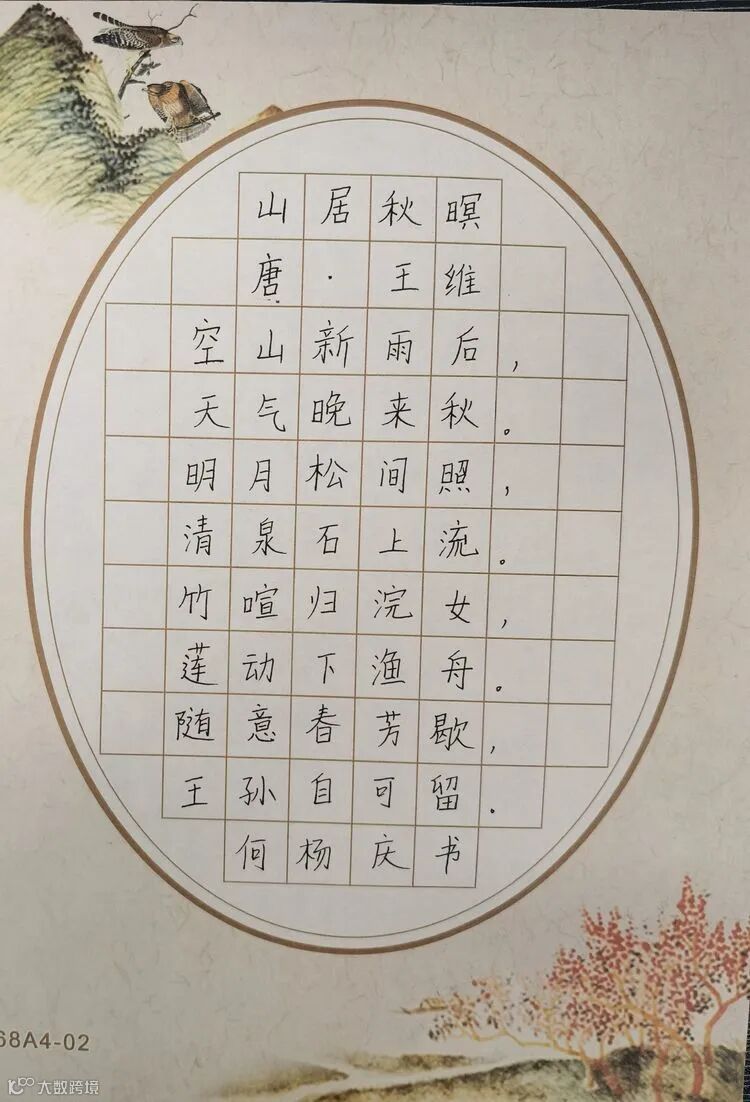 山居秋暝
唐·王维
空山新雨后，
天气晚来秋。
明月松间照，
清泉石上流。
竹喧归浣女，
莲动下渔舟。
随意春芳歇，
王孙自可留.
何杨庆书
68A4-02
大数跨境